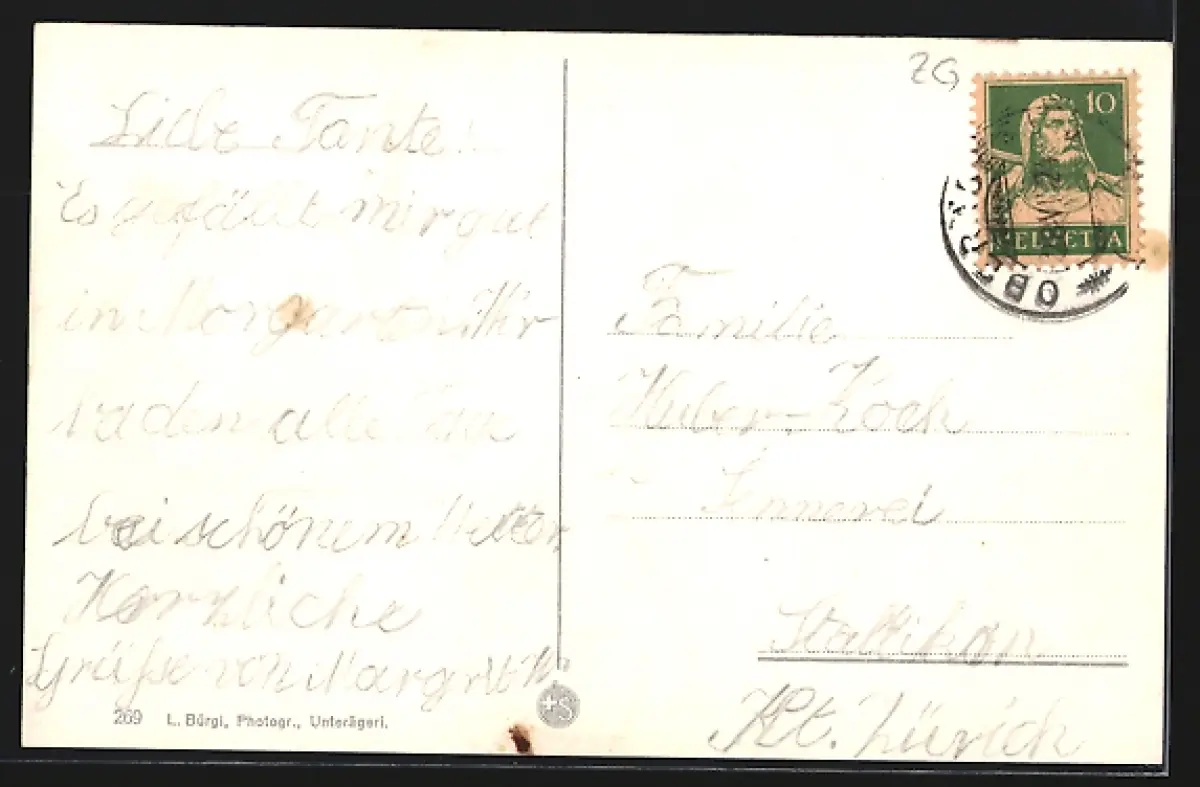 Liebe Tante!
Es gefällt mir gut
in Morgarten. Wir
baden alle Tag
bei schönem Wetter.
Herzliche
Grüße von Margrit H.
269 L. Bürgi, Photogr., Unterägeri.
+S
ZG
10
HELVETIA
OBER
Familie
Huber-Koch
Sennerei
Stallikon
Kt. Zürich